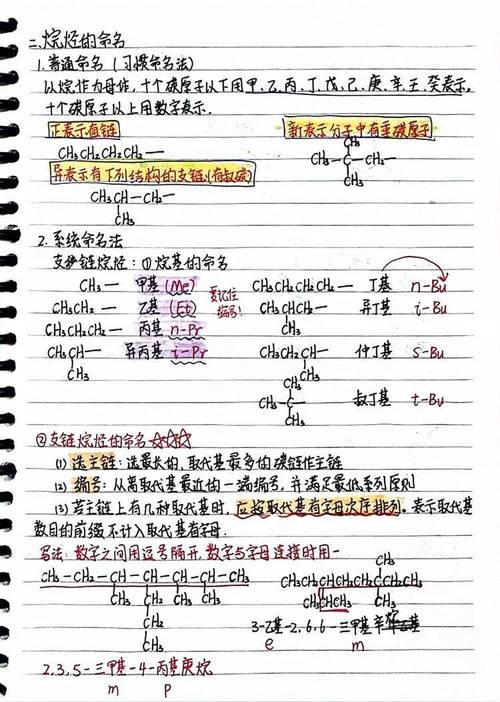 二、烷烃的命名
1.普通命名（习惯命名法）
以烷作为母体，十个碳原子以下用甲、乙、丙、丁、戊、己、庚、辛、壬、癸表示。
十个碳原子以上用数字表示.
正表示直链
新表示分子中有季碳原子
CH₃CH₂CH₂CH₂—
CH₃
CH₃—C—CH₂—
CH₃
异表示有下列结构的支链(有叔碳)
CH₃CH—CH₂—
CH₃
2.系统命名法
支链烷烃：①烷基的命名
CH₃— 甲基(Me)
CH₃CH₂— 乙基(Et)
CH₃CH₂CH₂— 丙基 n-Pr
CH₃CH— 异丙基 i-Pr
CH₃
要记住
编号!
CH₃CH₂CH₂CH₂— 丁基 n-Bu
CH₃CHCH₂— 异丁基 i-Bu
CH₃
CH₃CH₂CH— 仲丁基 s-Bu
CH₃
CH₃
CH₃—C— 叔丁基 t-Bu
CH₃
②支链烷烃的命名☆☆☆
(1) 选主链：选最长的、取代基最多的碳链作主链
(2) 编号：从离取代基最近的一端编号，并满足最低系列原则
(3) 若主链上有几种取代基时，应按取代基首字母次序排列。表示取代基
数目的前缀不计入取代基首字母.
写法：数字之间用逗号隔开，数字与字母连接时用-
CH₃—CH₂—CH—CH—CH—CH—CH₃
CH₃ CH₂ CH₃ CH₃
CH₂
CH₃
2,3,5-三甲基-4-丙基庚烷
m p
CH₃
CH₃CH₂CHCH₂CH₂CCH₂CH₃
CH₃CHCH₃ CH₃
3-乙基-2,6,6-三甲基辛烷
e m